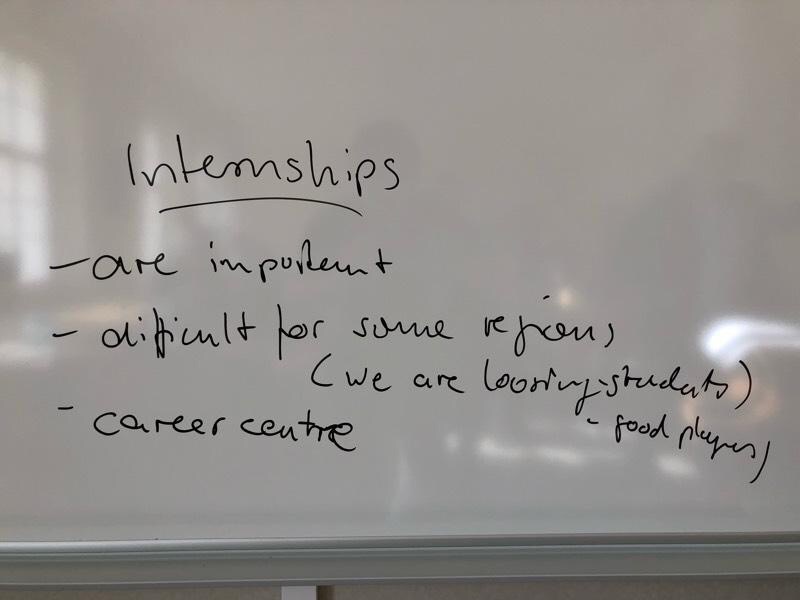 Internships
- are important
- difficult for some regions
(we are loosing students)
- good players
- career centre